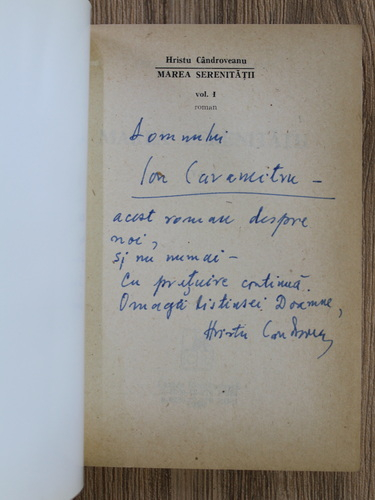 Hristu Cândroveanu
MAREA SERENITĂȚII
vol. 1
roman
Domnului
Ion Caramitru —
acest roman despre
noi,
și nu numai —
Cu prețuire continuă.
Omagii distinsei Doamne,
Hristu Cândroveanu